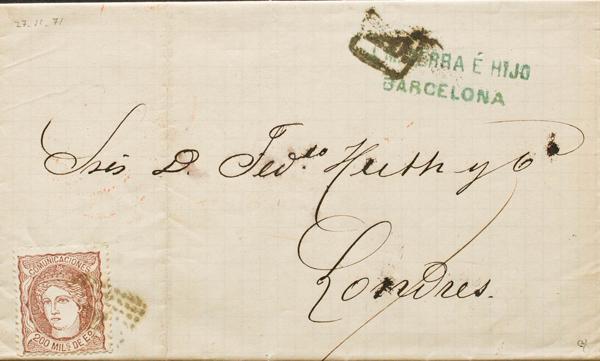 27-11-71
SERRA É HIJO
BARCELONA
Sres D. Fedco Huth y Ca
Londres.
COMUNICACIONES
200 MILS. DE EO.